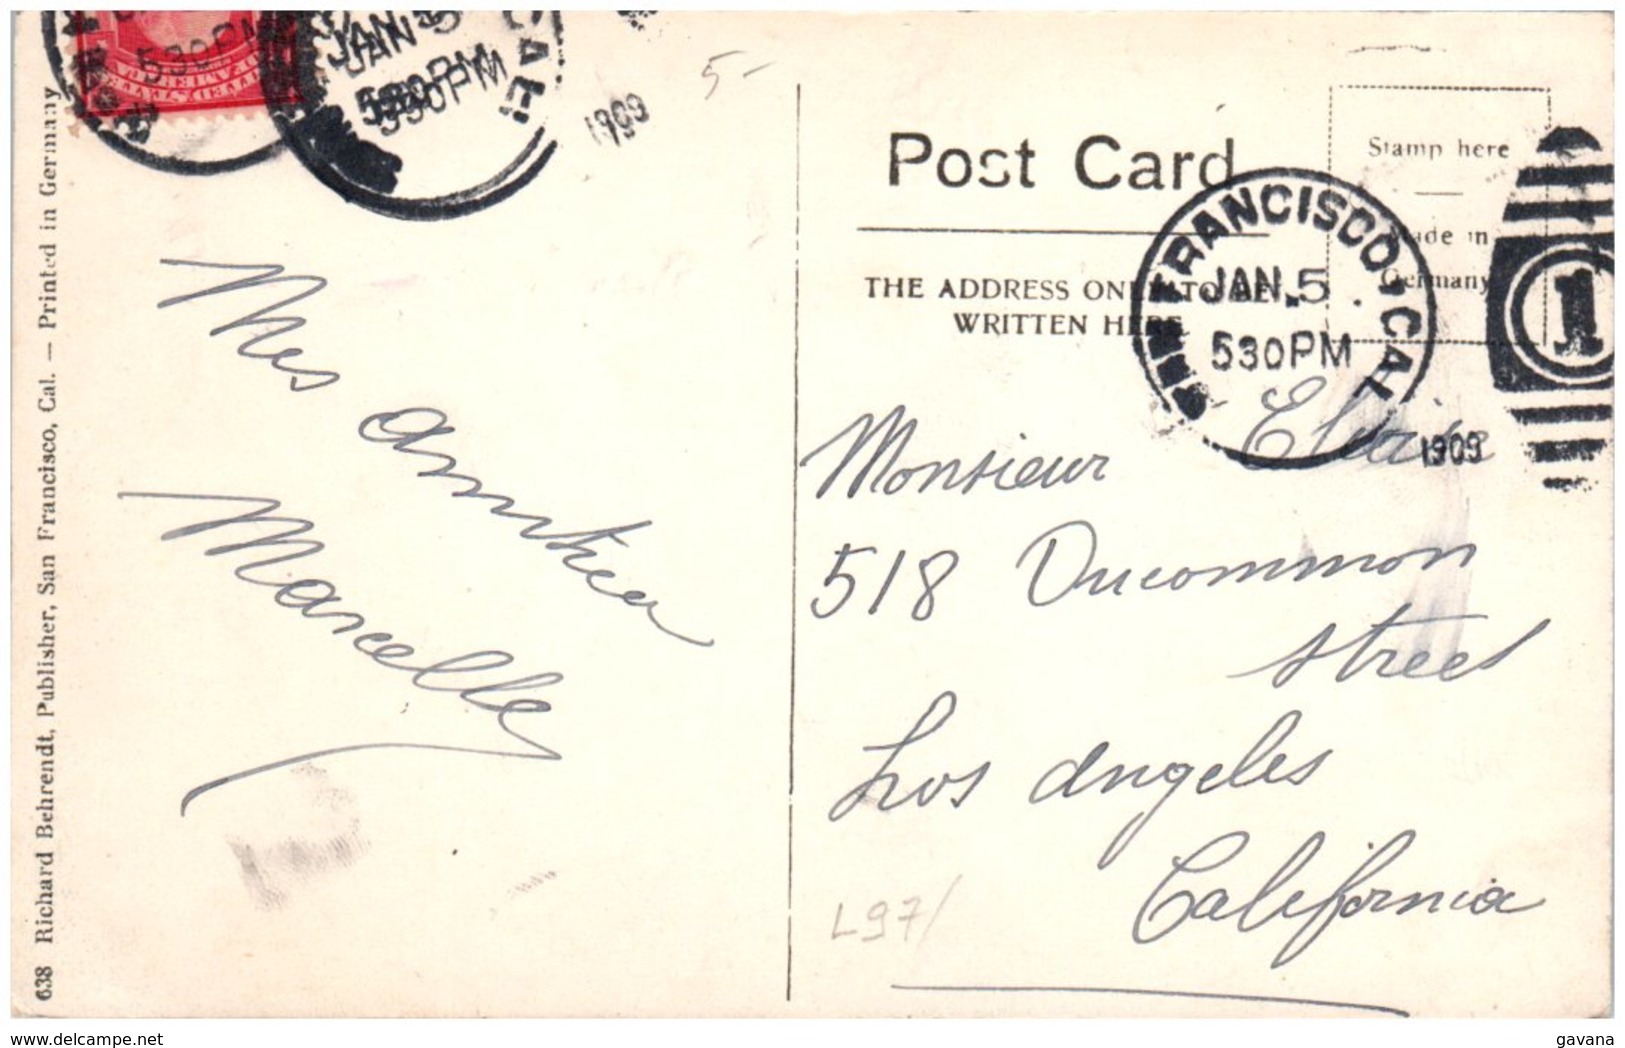 530PM
JAN 5
530PM
1909
5-
Post Card
Stamp here
Made in
Germany
THE ADDRESS ONLY TO BE
WRITTEN HERE
SAN FRANCISCO, CAL.
JAN. 5
530PM
1909
1
638 Richard Behrendt, Publisher, San Francisco, Cal. — Printed in Germany
Mes amitiés
Marcelle
Monsieur
518 Ducommon
street
Los Angeles
California
L97/
delcampe.net
gavana